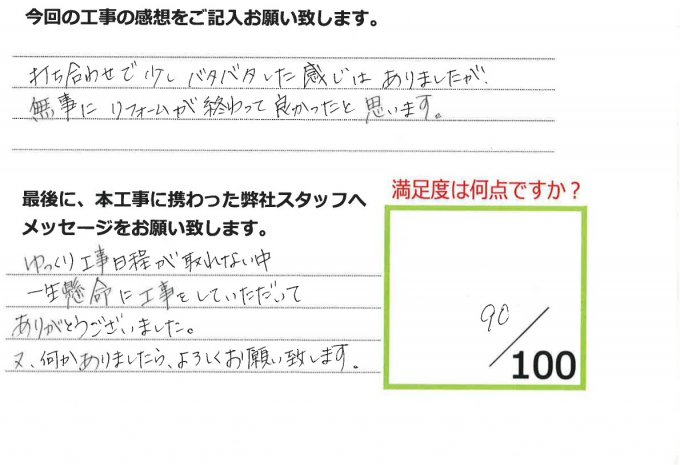 今回の工事の感想をご記入お願い致します。
打ち合わせで少しバタバタした感じはありましたが、
無事にリフォームが終わって良かったと思います。
最後に、本工事に携わった弊社スタッフへ
メッセージをお願い致します。
ゆっくり工事日程が取れない中
一生懸命に工事をしていただいて
ありがとうございました。
又、何かありましたら、よろしくお願い致します。
満足度は何点ですか？
90
100